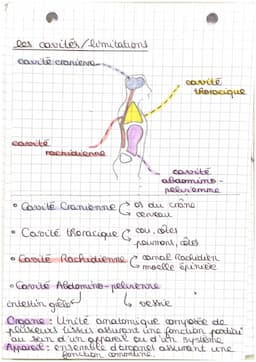 les cavités/limitations
cavité cranienne
cavité
thoracique
cavité
rachidienne
cavité
abdomino-
pelvienne
• Cavité Cranienne os du crâne
cerveau
• Cavité thoracique cou, côtes
poumons, côtes
• Cavité Rachidienne canal Rachidien
moelle épinière
• Cavité Abdomino-pelvienne
intestin grêle vessie
Organe : Unité anatomique composée de
plusieurs tissus assurant une fonction
au sein d'un appareil ou d'un système
Appareil : ensemble d'organes assurant une
fonction commune.